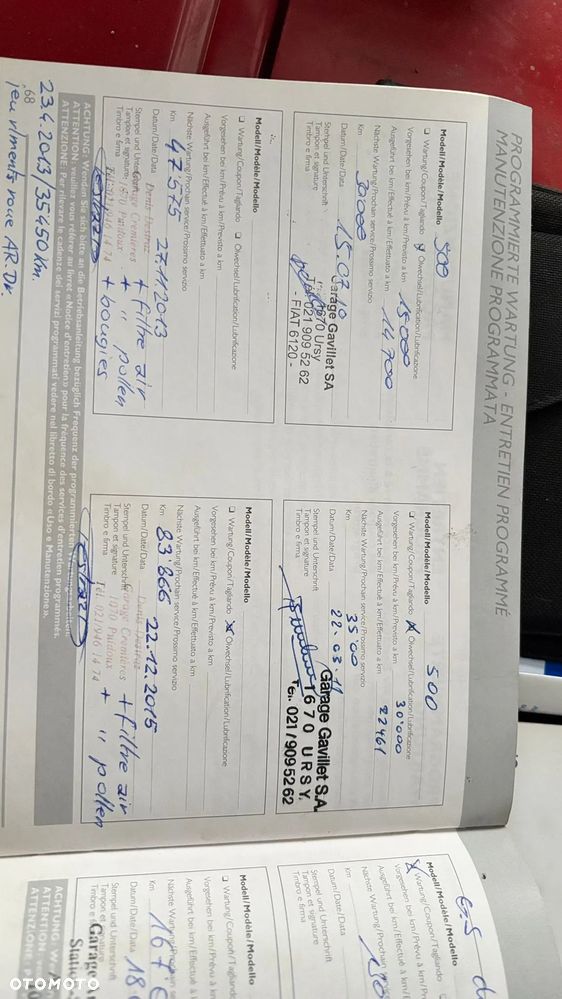 PROGRAMMIERTE WARTUNG - ENTRETIEN PROGRAMMÉ
MANUTENZIONE PROGRAMMATA
Modell/Modèle/Modello 500
❑ Wartung/Coupon/Tagliando ❑ Ölwechsel/Lubrification/Lubrificazione
Vorgesehen bei km/Prévu à km/Previsto a km 15'000
Ausgeführt bei km/Effectué à km/Effettuato a km 14'700
Nächste Wartung/Prochain service/Prossimo servizio
Km 30'000
Datum/Date/Data 15.07.10
Stempel und Unterschrift
Tampon et signature
Timbro e firma
Garage Gavillet SA
1670 Ursy
Tél. 021 909 52 62
- FIAT 6120 -
Modell/Modèle/Modello 500
❑ Wartung/Coupon/Tagliando ❑ Ölwechsel/Lubrification/Lubrificazione
Vorgesehen bei km/Prévu à km/Previsto a km 30'000
Ausgeführt bei km/Effectué à km/Effettuato a km 22461
Nächste Wartung/Prochain service/Prossimo servizio
Km
Datum/Date/Data 22.03.11
Stempel und Unterschrift
Tampon et signature
Timbro e firma
Garage Gavillet S.A.
1670 URSY
Tél. 021/909 52 62
Modell/Modèle/Modello
❑ Wartung/Coupon/Tagliando ❑ Ölwechsel/Lubrification/Lubrificazione
Vorgesehen bei km/Prévu à km/Previsto a km
Ausgeführt bei km/Effectué à km/Effettuato a km
Nächste Wartung/Prochain service/Prossimo servizio
Km 47575
Datum/Date/Data 27.11.2013
Stempel und Unterschrift
Tampon et signature
Timbro e firma
Garage Cremières
1070 Puidoux
+ filtre air
+ " pollen
+ bougies
Modell/Modèle/Modello
❑ Wartung/Coupon/Tagliando ❑ Ölwechsel/Lubrification/Lubrificazione
Vorgesehen bei km/Prévu à km/Previsto a km
Ausgeführt bei km/Effectué à km/Effettuato a km
Nächste Wartung/Prochain service/Prossimo servizio
Km 83'866
Datum/Date/Data 22.12.2015
Stempel und Unterschrift
Tampon et signature
Timbro e firma
Garage Cremières
1070 Puidoux
Tél. 021/946 14 74
+ filtre air
+ " pollen
ACHTUNG: Wenden Sie sich bitte an die Betriebsanleitung bezüglich Frequenz der programmierten
ATTENTION: veuillez vous référer au livret «Notice d'entretien» pour la fréquence des services d'entretien programmés.
ATTENZIONE: Per rilevare le cadenze dei servizi programmati vedere nel libretto di bordo «Uso e Manutenzione».
68
23.4.2013/35450 km.
roue AR.Dr.
Modell/Modèle/Modello
Wartung/Coupon/Tagliando
Vorgesehen bei km/Prévu à km/
Ausgeführt bei km/Effectué à
Nächste Wartung/Prochain
Km
Datum/Date/Data
Stempel und Unterschrift
Tampon et signature
Timbro e firma
Modell/Modèle/Modello
❑ Wartung/Coupon/Tagliando
Vorgesehen bei km/Prévu à km/
Ausgeführt bei km/Effectué à
Nächste Wartung/Prochain
Km
Datum/Date/Data
Stempel und Unterschrift
Tampon et signature
Timbro e
Garage
ACHTUNG:
ATTENTION:
ATTENZIONE:
OTOMOTO